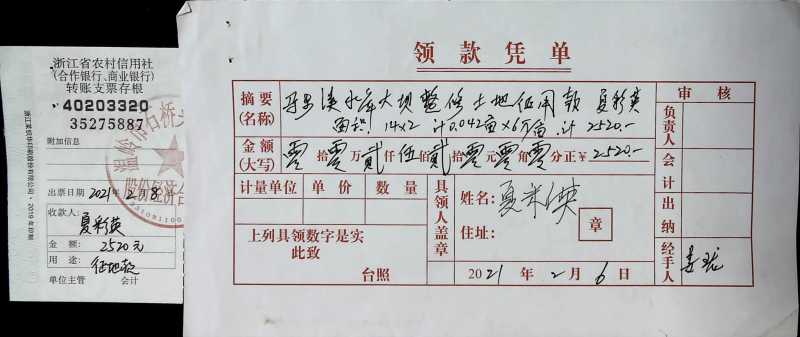 浙江省农村信用社
(合作银行、商业银行)
转账支票存根
40203320
35275887
附加信息
出票日期 2021年2月8日
收款人:
夏彩英
金 额: 2520元
用 途: 征地款
单位主管 会计
领款凭单
摘要
(名称)
水库大坝整修土地征用款 夏彩英
面积 14×2 计0.042亩×6万/亩 计 2520.-
金额
(大写)
零拾零万贰仟伍佰贰拾零元零角零分正¥2520.-
计量单位 单价 数量
上列具领数字是实
此致
台照
具领人盖章
姓名: 夏采英
住址:
章
2021年2月6日
审核
负责人
会计
出纳
经手人